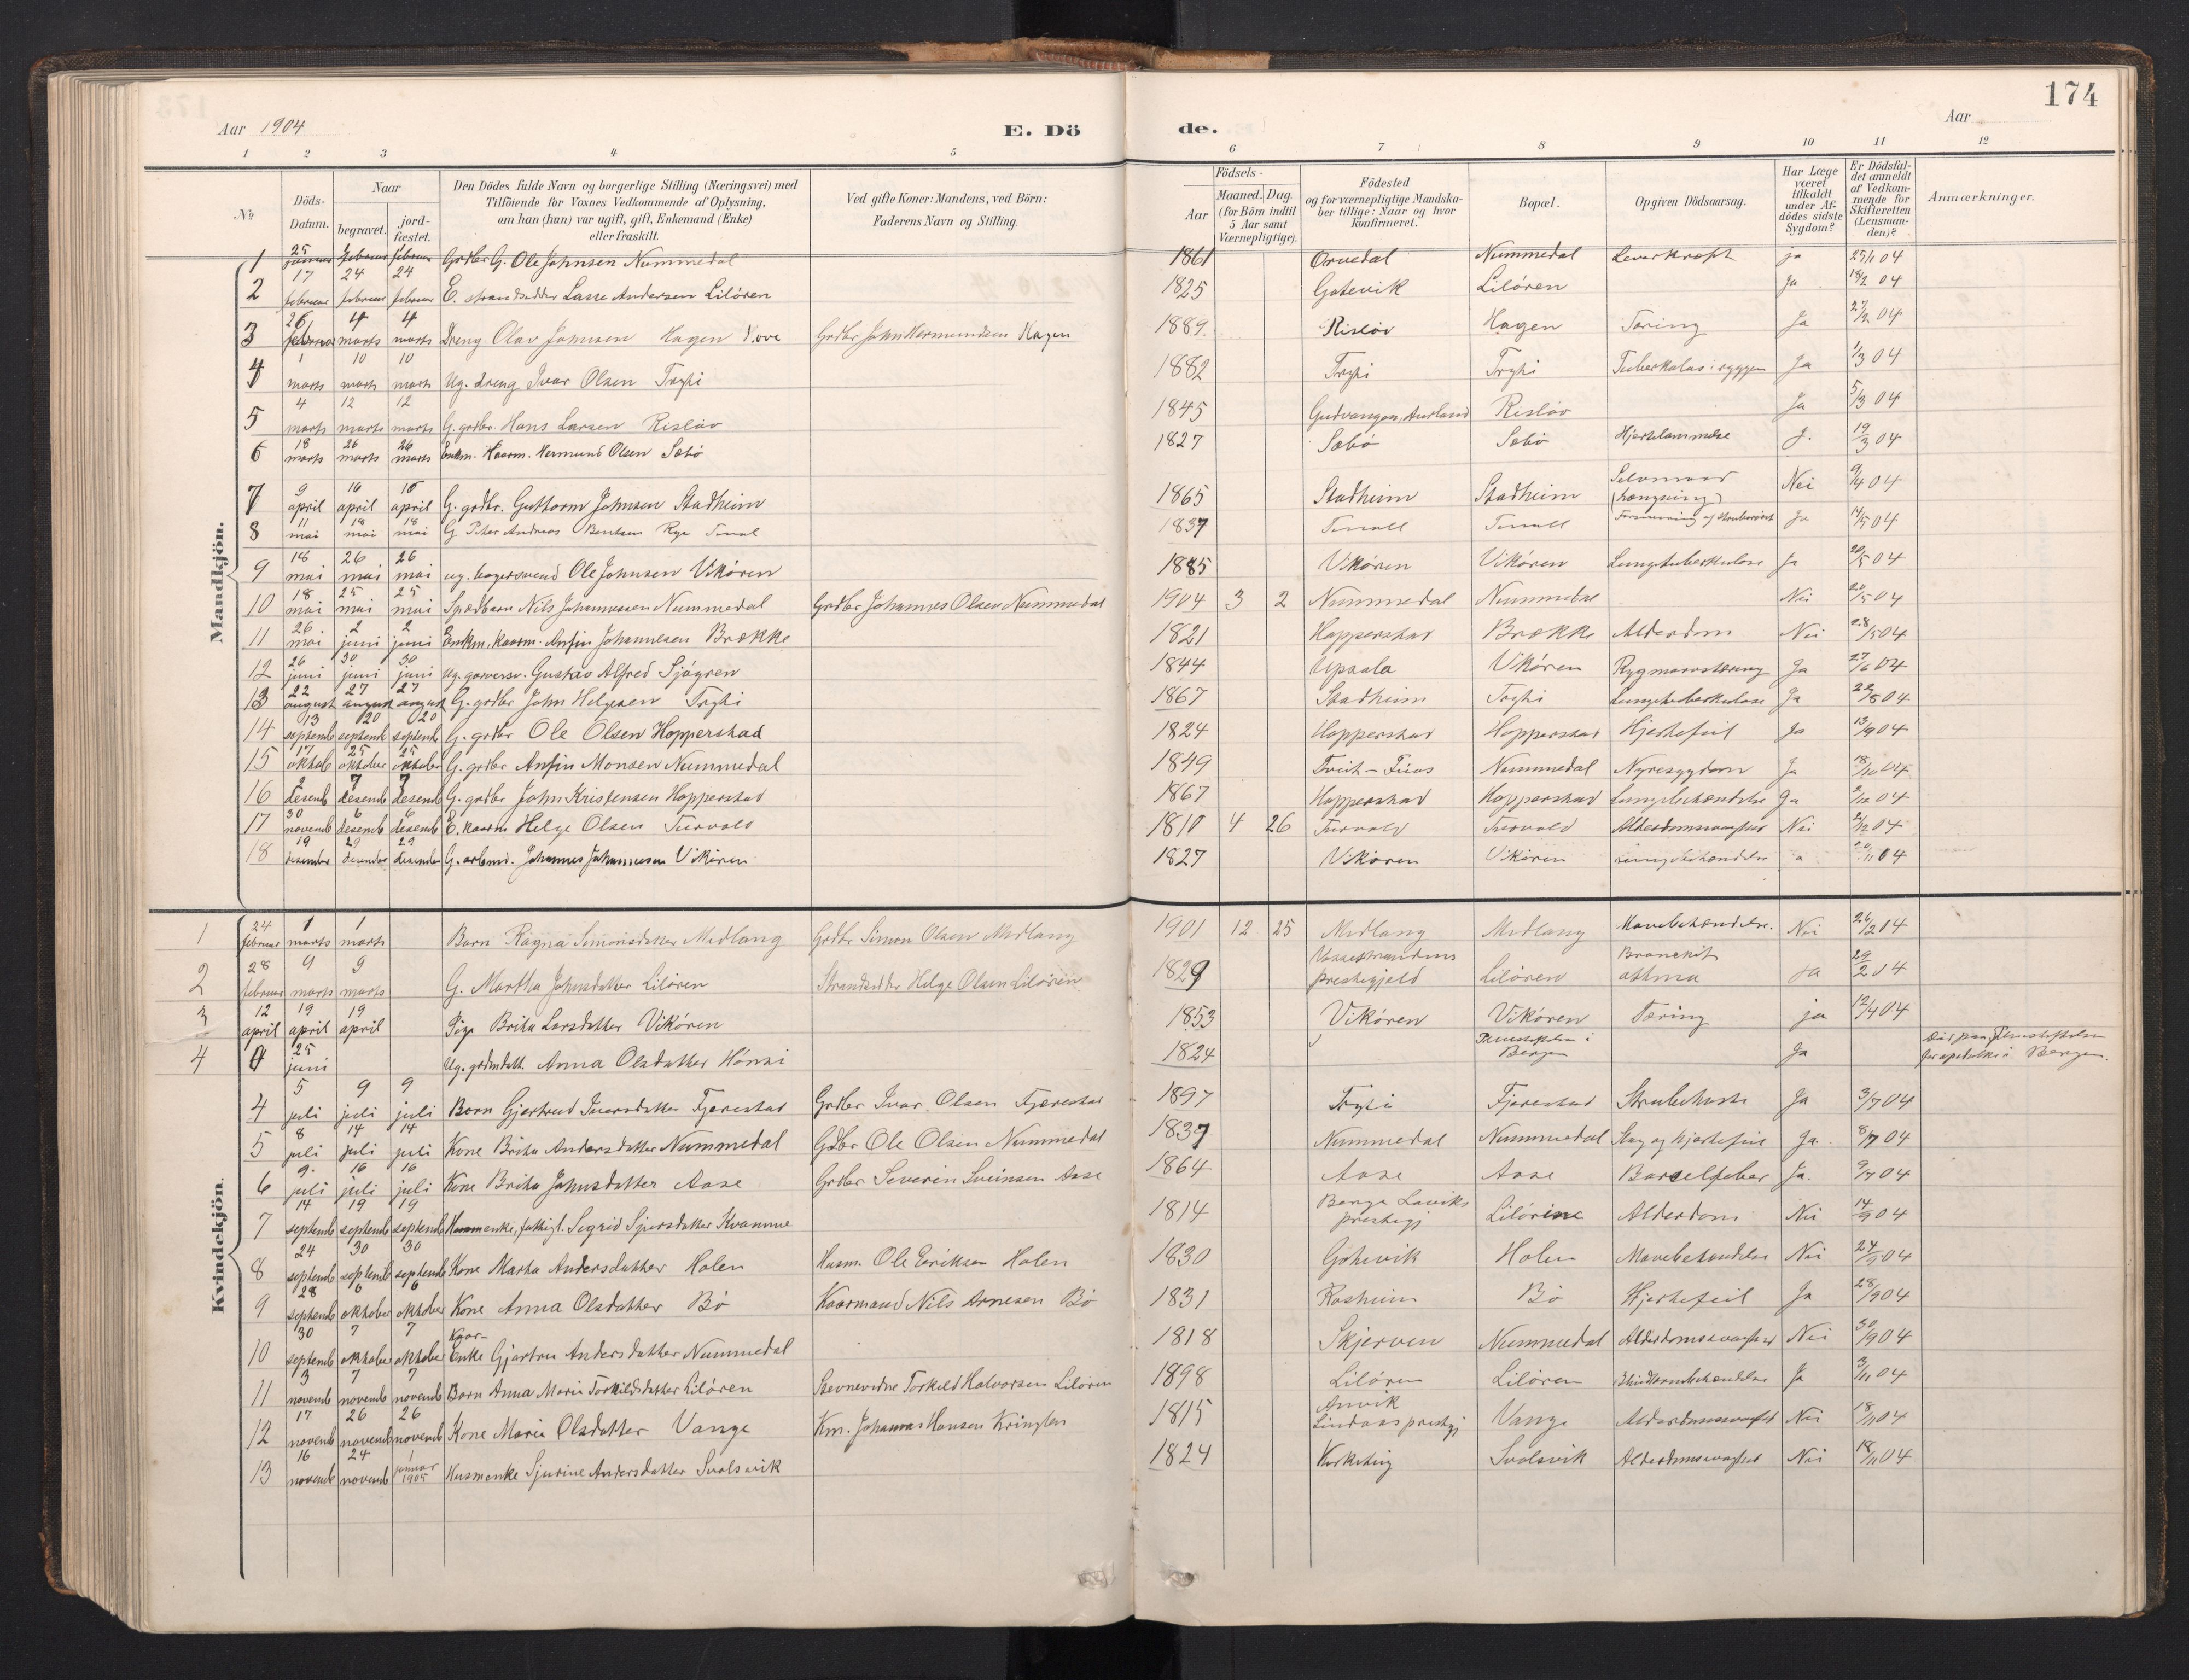 174
Aar 1904
E. Dö
de.
Aar
1 2 3 4 5 6 7 8 9 10 11 12
№
Döds-Datum.
Naar
begravet.
jord-fæstet.
Den Dödes fulde Navn og borgerlige Stilling (Næringsvei) med
Tilföiende for Voxnes Vedkommende af Oplysning,
om han (hun) var ugift, gift, Enkemand (Enke)
eller fraskilt.
Ved gifte Koner: Mandens, ved Börn:
Faderens Navn og Stilling.
Födsels-
Aar
Maaned. Dag.
(for Börn indtil
5 Aar samt
Værnepligtige).
Födested
og for værnepligtige Mandska-
ber tillige: Naar og hvor
konfirmeret.
Bopæl.
Opgiven Dödsaarsag.
Har Læge
været
tilkaldt
under Af-
dödes sidste
Sygdom?
Er Dödsfal-
det anmeldt
af Vedkom-
mende for
Skifteretten
(Lensman-
den)?
Anmærkninger.
Mandkjön.
1 25 januar februar februar Grdbr G. Ole Johnsen Nummedal 1861 Nummedal Leverkræft ja 25/1 04
2 17 februar 24 februar 24 februar E. strandsidder Lasse Andersen Lilören 1825 Gotevik Lilören Ja 18/2 04
3 26 februar 4 marts 4 marts Dreng Olav Johnsen Hagen Hove Grdbr John Hermundsen Hagen 1889. Risløv Hagen Tæring Ja 27/2 04
4 1 marts 10 marts 10 marts Ug. dreng Ivar Olsen Tryhi 1882 Tryhi Tryhi Tuberkulos i ryggen Ja 1/3 04
5 4 marts 12 marts 12 marts G. grdbr. Hans Larsen Risløv 1845 Gudvangen, Aurland Risløv Ja 5/3 04
6 18 marts 26 marts 26 marts Enkm. Kaarm. Hermund Olsen Sæbö 1827 Sæbö Sæbö Hjertelammelse J. 19/3 04
7 9 april 16 april 16 april G. grdbr. Guttorm Johnsen Stadheim 1865 Stadheim Stadheim Selvmord (hængning) Nei 9/4 04
8 11 mai 18 mai 18 mai G Peter Andreas Bentsen Rye 1837 Ja 14/5 04
9 18 mai 26 mai 26 mai ug. bagersvend Ole Johnsen Vikören 1885 Vikören Vikören Lungetuberkulose Ja 20/5 04
10 18 mai 25 mai 25 mai Spædbarn Nils Johannessen Nummedal Grdbr Johannes Olsen Nummedal 1904 3 2 Nummedal Nummedal Nei 20/5 04
11 26 mai 2 juni 2 juni Enkm. Kaarm. Anfin Johannesen Brække 1821 Hopperstad Brække Alderdom Nei 28/5 04
12 26 juni 30 juni 30 juni Ug. garversv. Gustav Alfred Sjögren 1844 Upsala Vikören Rygmarvstæring Ja 27/6 04
13 22 august 27 august 27 august G. grdbr John Helgesen Tryhi 1867 Stadheim Tryhi Lungetuberkulose Ja 22/8 04
14 13 septemb 20 septemb 20 septemb G. grdbr Ole Olsen Hopperstad 1824 Hopperstad Hopperstad Hjertefeil Ja 13/9 04
15 17 oktob 25 oktober 25 oktober G. grdbr Anfin Monsen Nummedal 1849 Nummedal Nyresygdom Ja 18/10 04
16 2 desemb 7 desemb 7 desemb G. grdbr John Kristensen Hopperstad 1867 Hopperstad Hopperstad Lungebetændelse Ja 2/12 04
17 30 novemb 6 desemb 6 desemb E. kaarm Helge Olsen Turvold 1810 4 26 Turvold Turvold Alderdomssvaghed Nei 2/12 04
18 19 desember 29 desember 29 desember G. arbmd. Johannes Johannesen Vikören 1827 Vikören Vikören Lungebetændelse 04
Kvindekjön.
1 24 februar 1 marts 1 marts Barn Ragna Simonsdatter Midlang Grdbr Simon Olsen Midlang 1901 12 25 Midlang Midlang Mavebetændelse. Nei 26/2 04
2 28 februar 9 marts 9 marts G. Martha Johnsdatter Lilören Strandsidder Helge Olsen Lilören 1829 Vossestrandens prestegjeld Lilören Bronckit astma Ja 29/2 04
3 12 april 19 april 19 april Pige Brita Larsdatter Vikören 1853 Vikören Vikören Tæring ja 12/4 04
4 25 juni Ug. grdmdatt. Anna Olsdatter Hönsi 1824 Pleiestiftelsen i Bergen Ja
4 5 juli 9 juli 9 juli Barn Gjertrud Iversdatter Fjærestad Grdbr Ivar Olsen Fjærestad 1897 Tryhi Fjærestad Strubehoste Ja 3/7 04
5 8 juli 14 juli 14 juli Kone Brita Andersdatter Nummedal Gdbr Ole Olsen Nummedal 1837 Nummedal Nummedal Slag og hjertefeil Ja 8/7 04
6 9. juli 16 juli 16 juli Kone Brita Johnsdatter Aase Grdbr Severin Sveinsen Aase 1864 Aase Aase Barselfeber Ja. 9/7 04
7 14 septemb 19 septemb 19 septemb Husmenke, fattigl. Sigrid Sjursdatter Kvamme 1814 Lilörene Alderdom Nei 14/9 04
8 24 septemb 30 septemb 30 septemb Kone Marta Andersdatter Holen Husm. Ole Eriksen Holen 1830 Gotevik Holen Mavebetændelse Nei 24/9 04
9 28 septemb 6 oktober 6 oktober Kone Anna Olsdatter Bö Kaarmand Nils Arnesen Bö 1831 Rosheim Bö Hjertefeil Ja 28/9 04
10 30 septemb 7 oktober 7 oktober Kaar-Enke Gjertru Andersdatter Nummedal 1818 Skjerven Nummedal Alderdomssvaghed Nei 30/9 04
11 3 novemb 7 novemb 7 novemb Barn Anna Marie Torkildsdatter Lilören Stevnevidne Torkild Halvorsen Lilören 1898 Lilören Lilören Blindtarmbetændelse Ja 3/11 04
12 17 novemb 26 novemb 26 novemb Kone Marie Olsdatter Vange Km. Johannes Hansen Kringlen 1815 Lindaas prestegj Vange Alderdomssvaghed Nei 18/11 04
13 16 novemb 24 novemb januar 1905 Husmenke Sjurine Andersdatter Svolsvik 1824 Svolsvik Alderdomssvaghed Nei 18/11 04